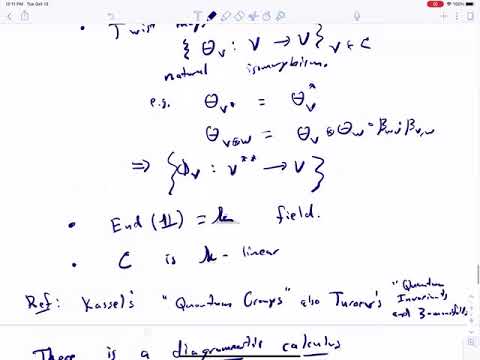 12:11 PM Tue Oct 13
100%
• Twist maps
{ θ_V : V → V }_{V ∈ C}
natural isomorphism.
e.g. θ_{V*} = θ_V^*
θ_{V⊗W} = θ_V ⊗ θ_W ∘ β_{W,V} β_{V,W}
⇒ { φ_V : V** → V }
• End(𝟙) = k field.
• C is k-linear
Ref: Kassel's "Quantum Groups" also Turaev's "Quantum Invariants and 3-manifolds
There is a diagrammatic calculus